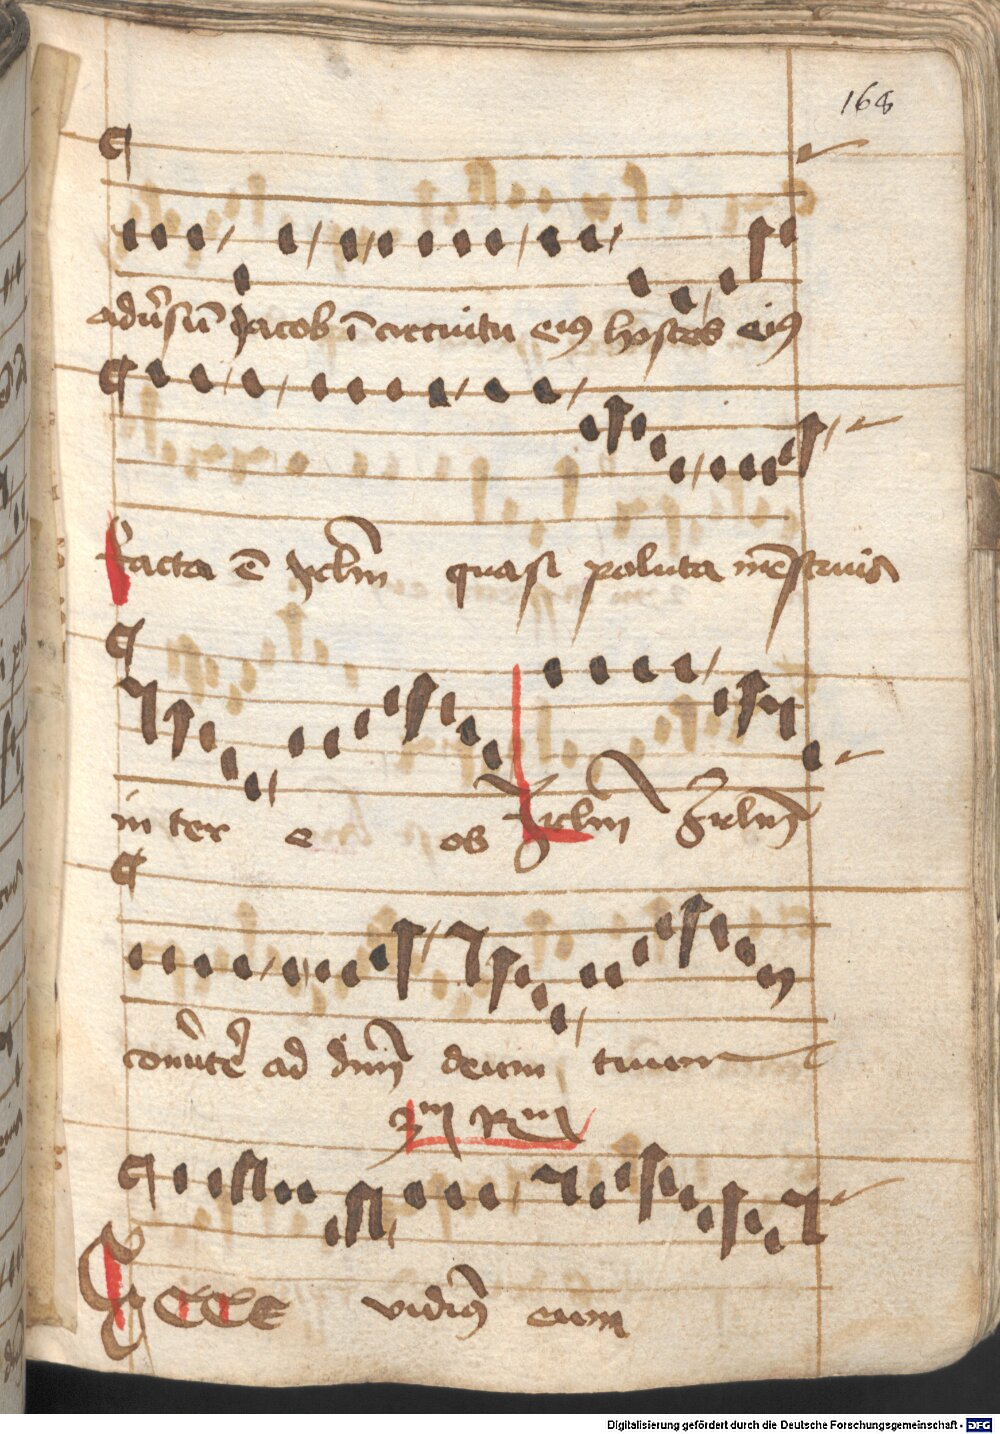 168
adu̓sū Jacob ī circuitu eiꝰ hostes eiꝰ
Facta ē Jrlm̄ quasi poluta mēstruis
in ter e os Jrlm̄ Jrlm̄
conu̓te̓ ad dnm̄ deum tuum
3m Rm
Ecce vidimꝰ eum
Digitalisierung gefördert durch die Deutsche Forschungsgemeinschaft - DFG